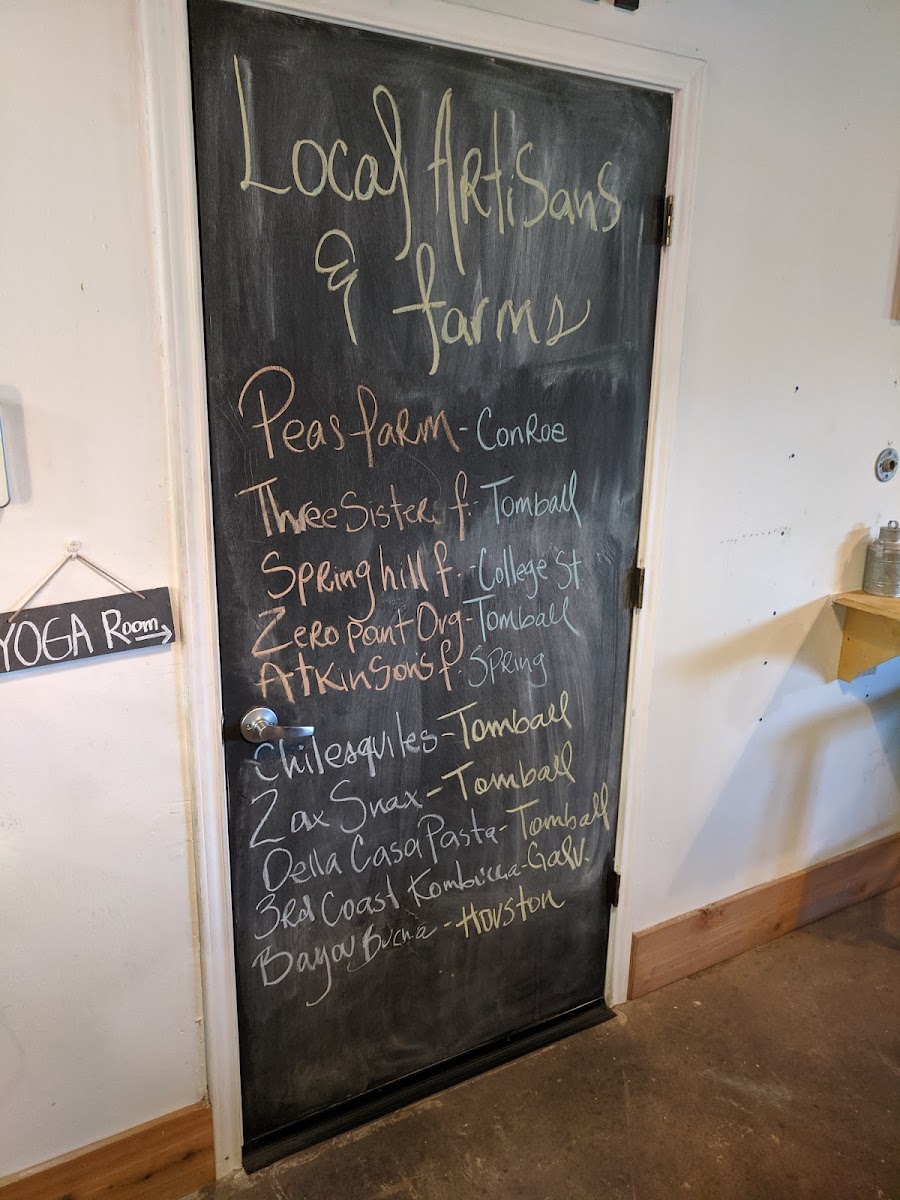 Local Artisans
& farms
Peas farm - Conroe
Three Sister f. - Tomball
Spring hill f. - College St
Zero point Org - Tomball
Atkinson's f. Spring
Chilesquiles - Tomball
Zax Snax - Tomball
Della Casa Pasta - Tomball
3rd Coast Kombucca - Galv.
Bayou Bucha - Houston
YOGA Room